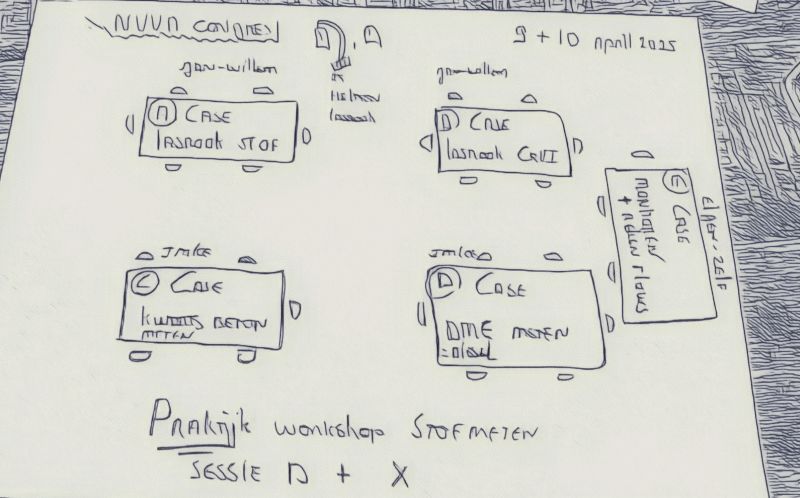 NVVA CONGRES
9 + 10 April 2025
Jan-willem
A CASE
lasrook STOF
Helmen
lasrook
Jan-willem
B CASE
lasrook CRVI
E CASE
MONHALEN
+ Meten flows
Jmke
C CASE
KWARTS BETON
METEN
Jmke
D CASE
DME METEN
=Diesel
Praktijk workshop STOFMETEN
SESSIE D + X